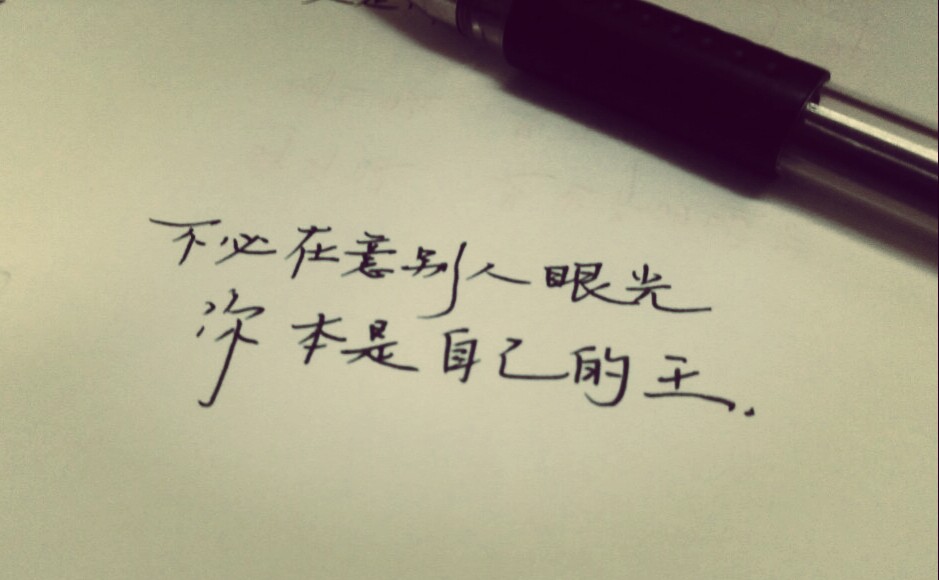 不必在意别人眼光
你本是自己的王.